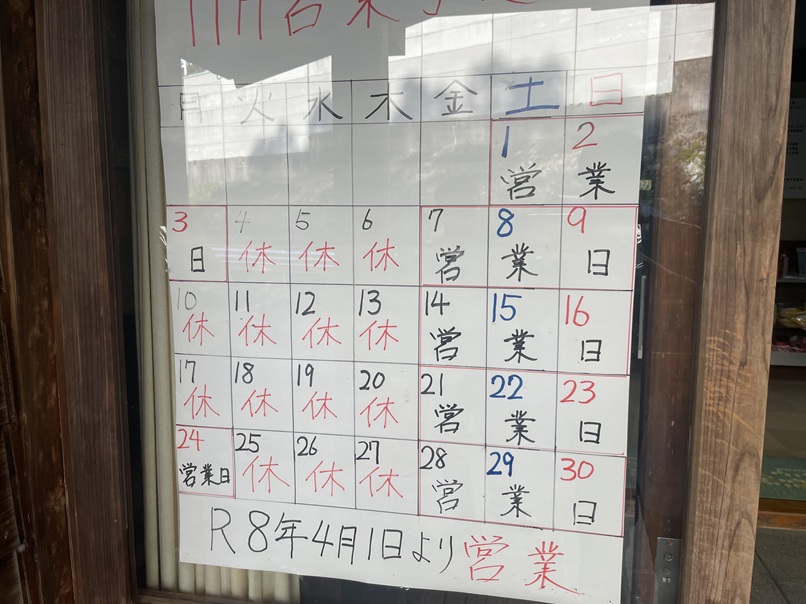 11月営業予定
月 火 水 木 金 土 日
1 2
営 業
3 4 5 6 7 8 9
日 休 休 休 営 業 日
10 11 12 13 14 15 16
休 休 休 休 営 業 日
17 18 19 20 21 22 23
休 休 休 休 営 業 日
24 25 26 27 28 29 30
営業日 休 休 休 営 業 日
R8年4月1日より営業